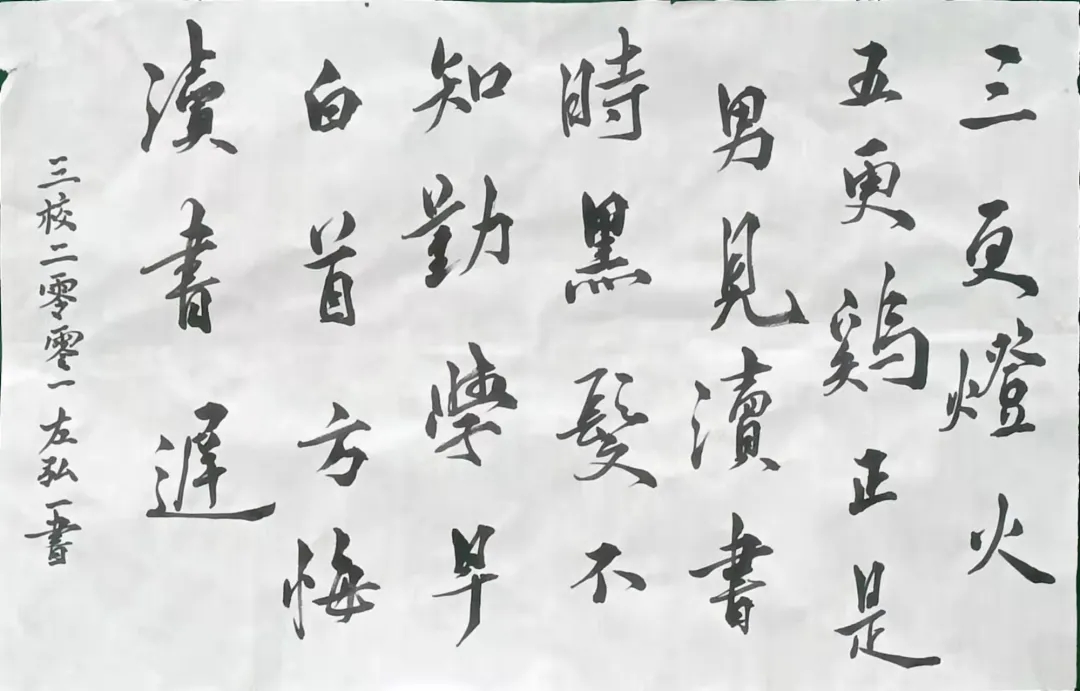 三更燈火
五更鷄正是
男見瀆書
時黑髮不
知勤學早
白首方悔
瀆書遲
三校二零零一左弘一書